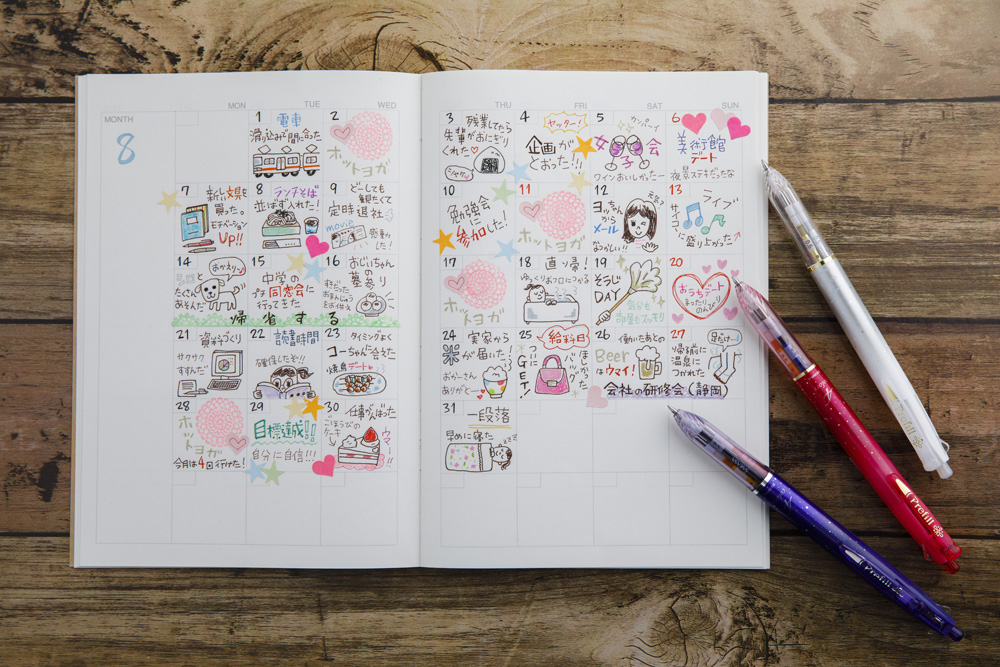 MONTH
8
MON
TUE
WED
THU
FRI
SAT
SUN
1
電車
滑り込みで間に合った
2
ホットヨガ
3
残業してたら
先輩がおにぎり
くれた
シャケ
4
ヤッター!
企画が
とおった!!
5
カンパーイ
女子会
ワインおいしかったー
6
美術館
デート
夜景ステキだったな
7
新しい文具を
買った。
モチベーション
UP!!
8
ランチそば
並ばず入れた!
9
どーしても
観たくて
定時退社
movie
感動
した!
10
勉強会
参加した!
11
ホットヨガ
12
ヨッ
ちゃん
から
メール
元気?
なつかしい!!
13
ライブ
サイコー
に盛り上がった
14
と
たくさん
あそんだ
おかえり
15
中学の
プチ同窓会に
行ってきた
16
おじいちゃん
の
墓参り
おまんじゅう
をお供え
帰省する
17
ホットヨガ
18
直ッ帰!
ゆっくりおフロにつかる
19
そうじ
DAY
気分も
部屋もスッキリ
20
おうちデート
まったりゥ
のんびり
21
資料づくり
サクサク
すすんだ!
22
読書時間
確保したぞ!!
23
タイミングよく
コーちゃんに会えた
焼鳥デート
24
実家から
米が届いた!
おかーさん
ありがとー
25
給料日
ほしかった
バッグ
ついに
GET!
26
働いたあとの
Beer
はウマイ!
27
足だけー!
帰る前に
温泉に
つかれた
会社の研修会(静岡)
28
ホットヨガ
今月は4回行けた!
29
目標達成!!
自分に自信!!!
30
仕事がんばった
ごほうびの
ケーキ
ウマ
31
一段落
早めに寝た
Prefill
Prefill